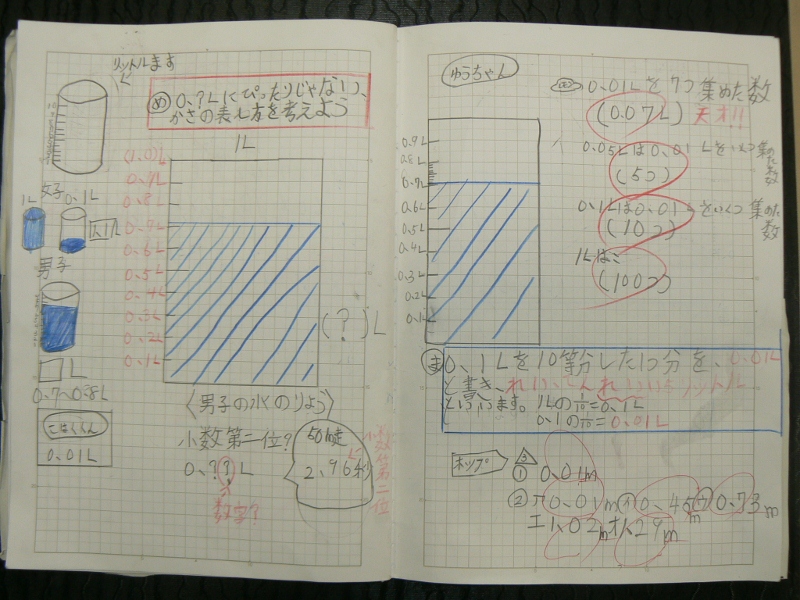 リットルます
め 0.?Lにぴったりじゃない、
かさの表し方を考えよう
1L
(1.0)L
0.9L
0.8L
0.7L
0.6L
0.5L
0.4L
0.3L
0.2L
0.1L
女子
1L
0.1L
男子
L
0.7〜0.8L
0.01L
(?)L
〈男子の水のりょう〉
小数第二位?
0.??L
数字?
50m走
2.96秒
小数第二位
ゆうちゃん
0.9L
0.8L
0.7L
0.6L
0.5L
0.4L
0.3L
0.2L
0.1L
0.01Lを7つ集めた数
(0.07L) 天才!!
0.05Lは0.01Lをいくつ集めた数
(5つ)
0.1Lは0.01Lをいくつ集めた数
(10こ)
1Lは:
(100こ)
ま 0.1Lを10等分した1つ分を、0.01L
と書き、れいてんれいいちリットル
といいます。 1Lの1/10=0.1L
0.1の1/10=0.01L
ホップ
① 0.01m
② ア0.01m イ0.45m ウ0.73m
エ1.02m オ1.29m